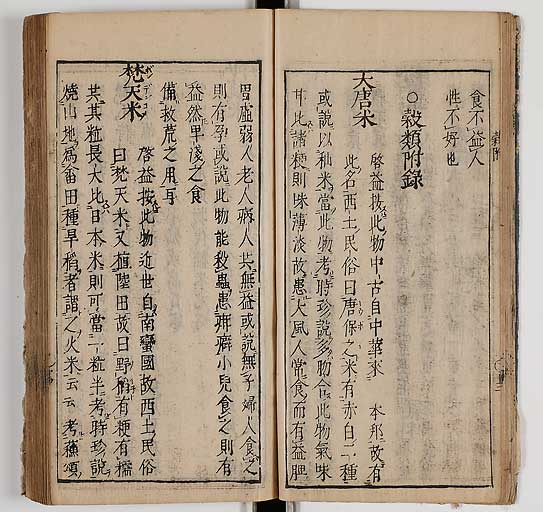 食不益人
性不好也
○穀類附録
大唐米
啓益按此物中古自中華來 本邦故有
此名西土民俗曰唐保之米有赤白二種
或說以秈米當此物考時珍說多吻合此物氣味
甘比諸粳則味薄淡故患大風人常食而有益脾
胃虛弱人老人病人共無益或說無子婦人食之
則有孕或說此物能殺蟲患癖小兒食之則有
益然早淺之食
備救荒之用耳
梵天米
啓益按此物近世自南蠻國故西土民俗
曰梵天米又植陸田故曰野稻有粳有糯
共其粒長大比日本米則可當一粒半考時珍說
燒山地為畬田種旱稻者謂之火米云云 考蘇頌